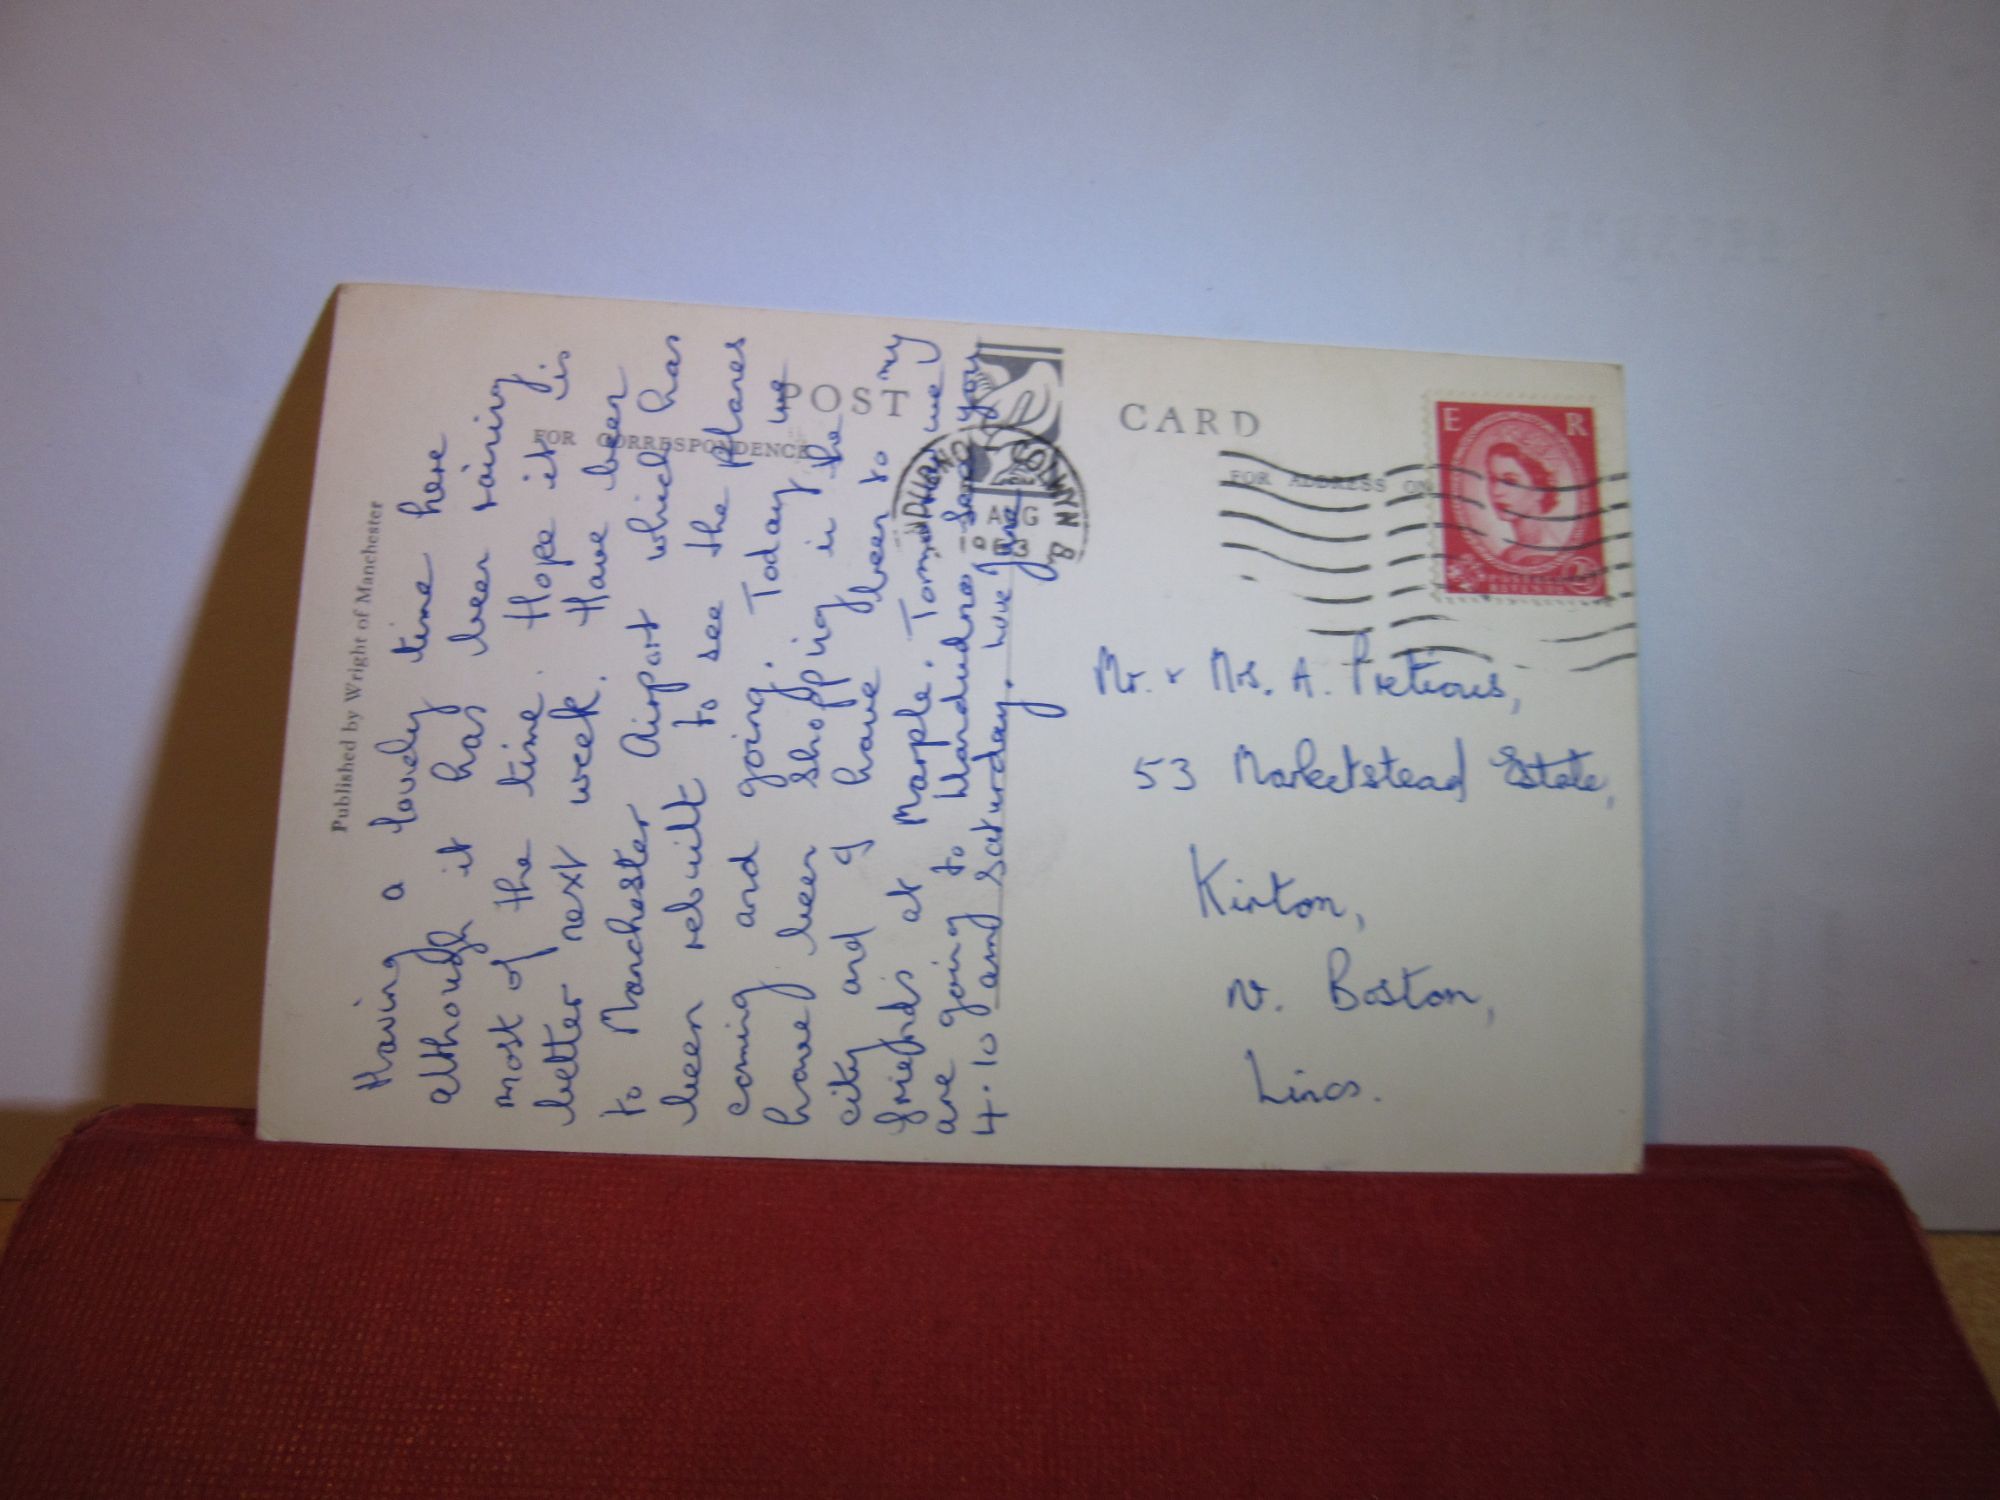 Published by Wright of Manchester
Having a lovely time here
although it has been raining
most of the time. Hope it is
better next week. Have been
to Manchester Airport which has
been rebuilt to see the planes
coming and going. Today we
have been shopping in the
city and I have been to my
friends at Marple. Tomorrow we
are going to Llandudno see you
4.10 am Saturday. love Jane
POST CARD
FOR CORRESPONDENCE
FOR ADDRESS ON
COLWYN B
AUG
E R
POSTAGE
REVENUE
Mr. & Mrs. A. Pretious,
53 Marketstead Estate,
Kirton,
nr. Boston,
Lincs.